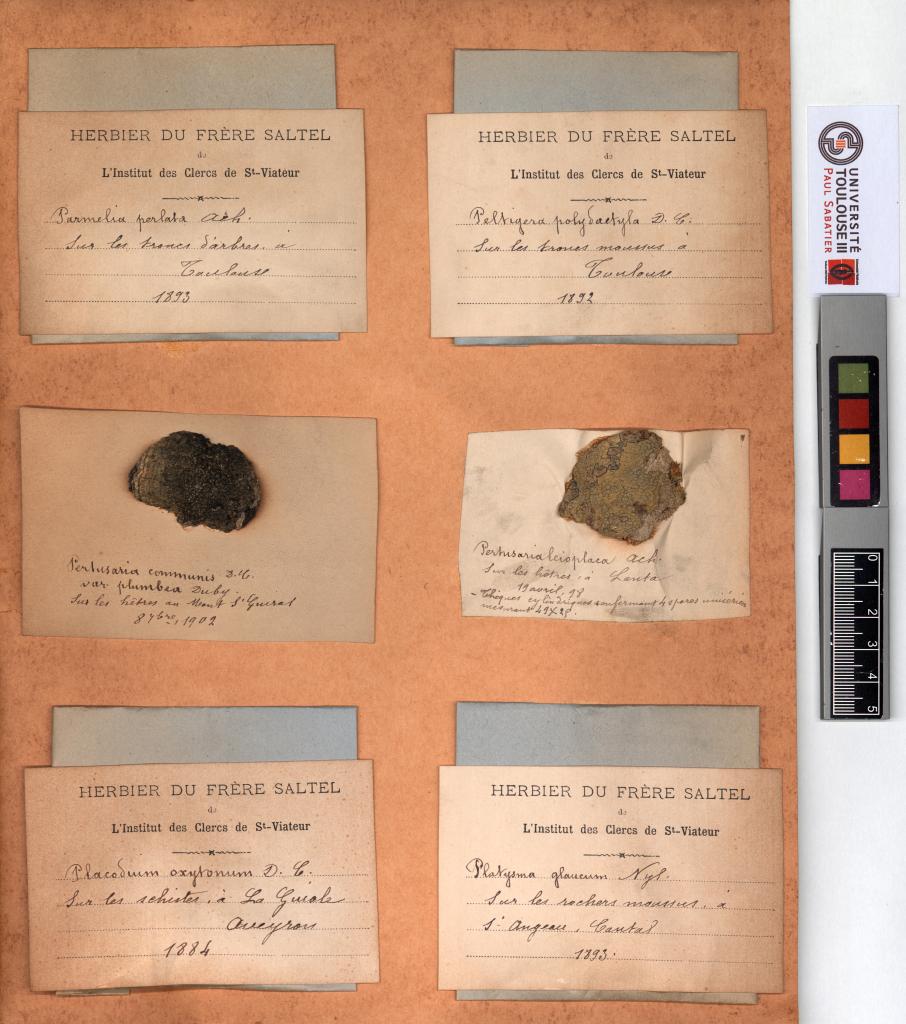 HERBIER DU FRÈRE SALTEL
de
L'Institut des Clercs de St-Viateur
Parmelia perlata Ach.
Sur les troncs d'arbres, à
Toulouse
1893
HERBIER DU FRÈRE SALTEL
de
L'Institut des Clercs de St-Viateur
Peltigera polydactyla D. C.
Sur les troncs moussus à
Toulouse
1892
Pertusaria communis D. C.
var. plumbea Duby.
Sur les hêtres au Mont St Guiral
8 7bre, 1902
Pertusaria leioplaca Ach.
Sur les hêtres, à Lanta
19 avril, 98
- Thèques cylindriques renfermant 4 spores unisériées
mesurant 49 X 28.
HERBIER DU FRÈRE SALTEL
de
L'Institut des Clercs de St-Viateur
Placodium oxytonum D. C.
Sur les schistes, à La Guiole
Aveyron
1884
HERBIER DU FRÈRE SALTEL
de
L'Institut des Clercs de St-Viateur
Platysma glaucum Nyl.
Sur les rochers moussus, à
St Angeau, Cantal
1893.
UNIVERSITÉ
TOULOUSE III
PAUL SABATIER
0 1 2 3 4 5